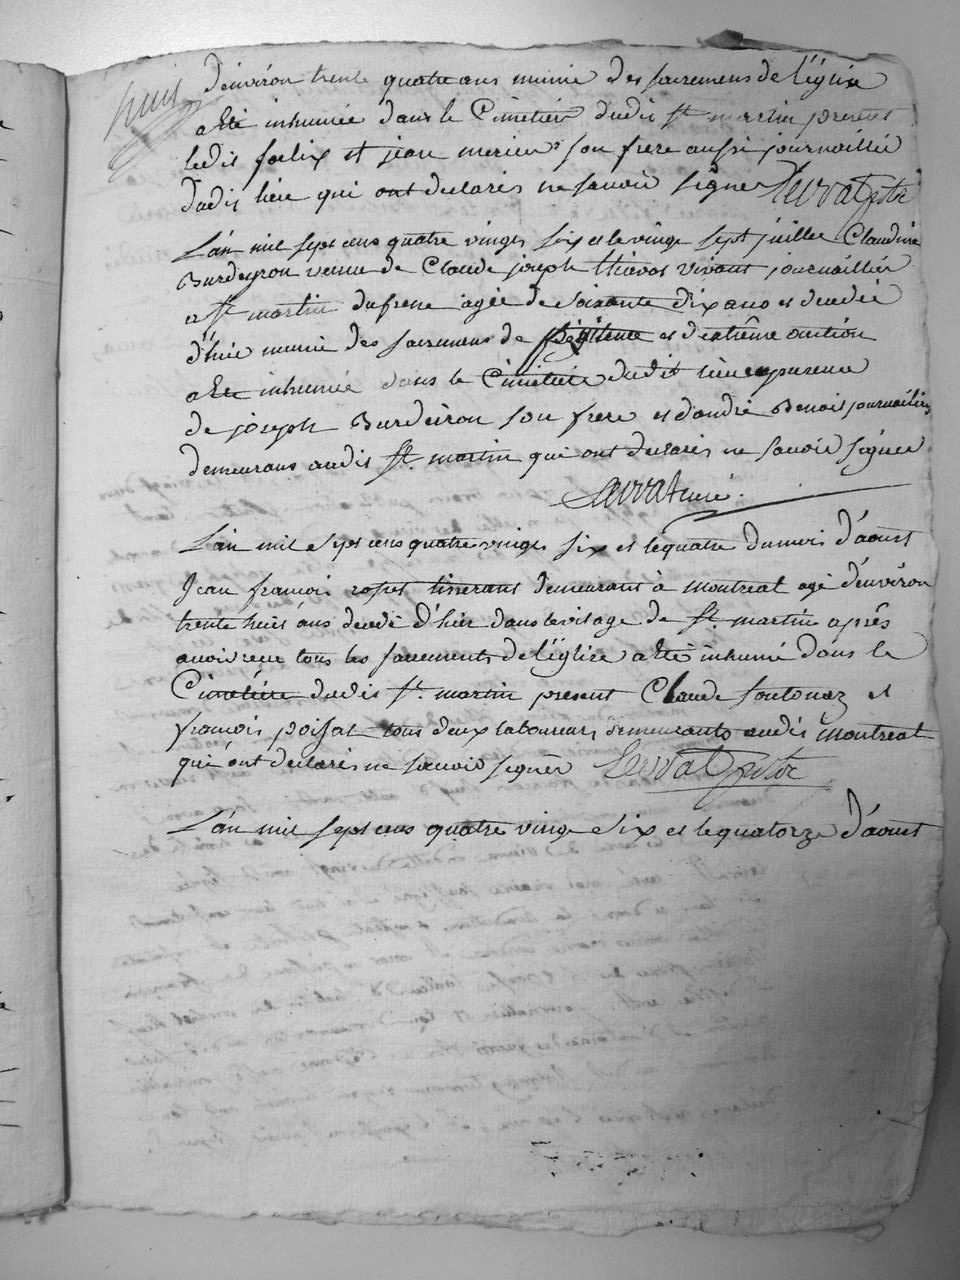 huit
d'environ trente quatre ans munie des sacremens de l'église
a été inhumée dans le Cimetiere dudit St martin présent
ledit foelix et jean mercier son frere aussi journaillié
dudit lieu qui ont declarés ne savoir signer Servat
L'an mil sept cens quatre vingt six et le vingt sept juillet Claudine
Burdeyron veuve de Claude joseph vivant journaillier
a St martin dufrene agée de soixante dix ans et decedée
d'hier munie des sacremens de penitence et d'extrême onction
a été inhumée dans le Cimetiere dudit lieu en presence
de joseph Burdeiron son frere et d'andré Benoit journailiers
demeurans audit St. martin qui ont declarés ne savoir signer
Servat curé.
L'an mil sept cens quatre vingt six et le quatre du mois d'aoust
Jean francois tisserant demeurant à montreal agé d'environ
trente huit ans decedé d'hier dans le village de St. martin après
avoir reçu tous les sacrements de l'église a été inhumé dans le
Cimetiere dudit St. martin present Claude soutonaz et
francois poisat tous deux laboureurs demeurants audit Montreal
qui ont declarés ne savoir signer Servat
L'an mil sept cens quatre vingt six et le quatorze d'aoust